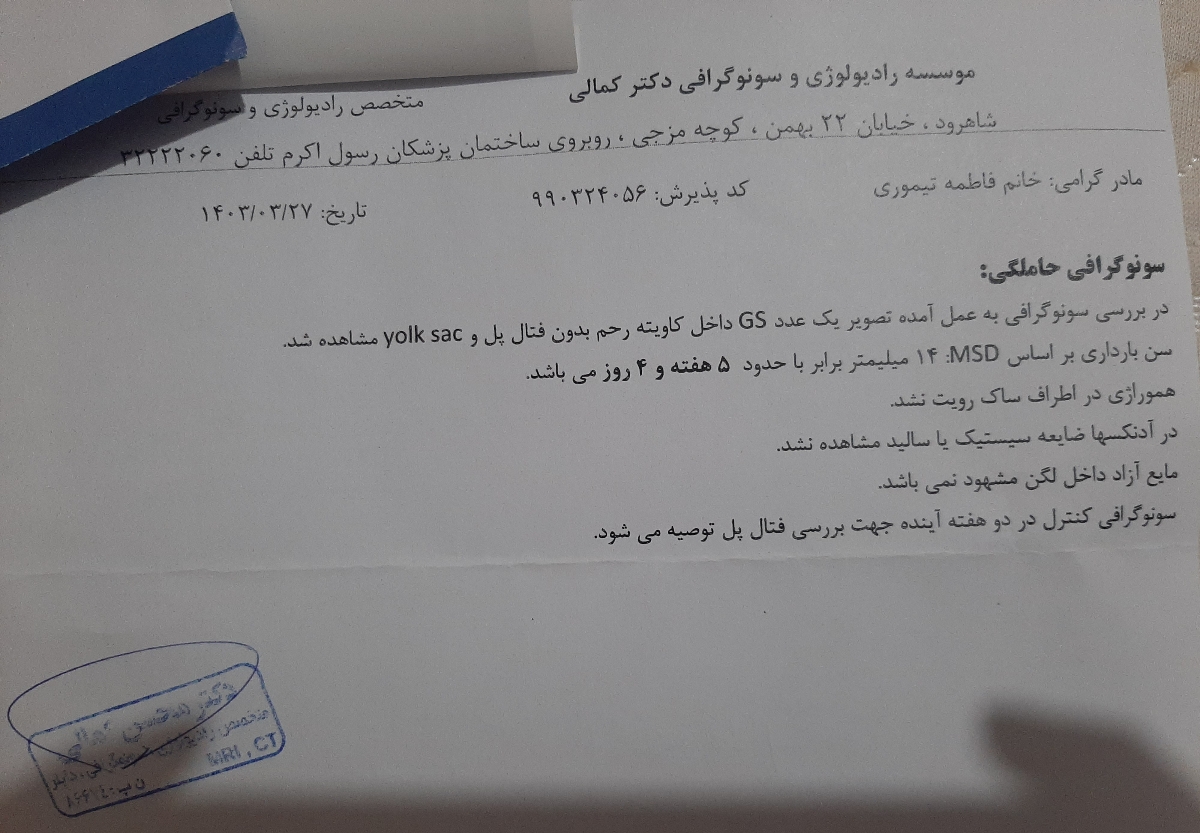 موسسه رادیولوژی و سونوگرافی دکتر کمالی
متخصص رادیولوژی و سونوگرافی
شاهرود ، خیابان ۲۲ بهمن ، کوچه مزجی ، روبروی ساختمان پزشکان رسول اکرم تلفن ۳۲۲۲۲۰۶۰
مادر گرامی: خانم فاطمه تیموری کد پذیرش: ۹۹۰۳۲۴۰۵۶ تاریخ: ۱۴۰۳/۰۳/۲۷
سونوگرافی حاملگی:
در بررسی سونوگرافی به عمل آمده تصویر یک عدد GS داخل کاویته رحم بدون فتال پل و yolk sac مشاهده شد.
سن بارداری بر اساس MSD: ۱۴ میلیمتر برابر با حدود ۵ هفته و ۴ روز می باشد.
هموراژی در اطراف ساک رویت نشد.
در آدنکسها ضایعه سیستیک یا سالید مشاهده نشد.
مایع آزاد داخل لگن مشهود نمی باشد.
سونوگرافی کنترل در دو هفته آینده جهت بررسی فتال پل توصیه می شود.
دکتر محسن کمالی
متخصص
MRI , CT
ن پ: